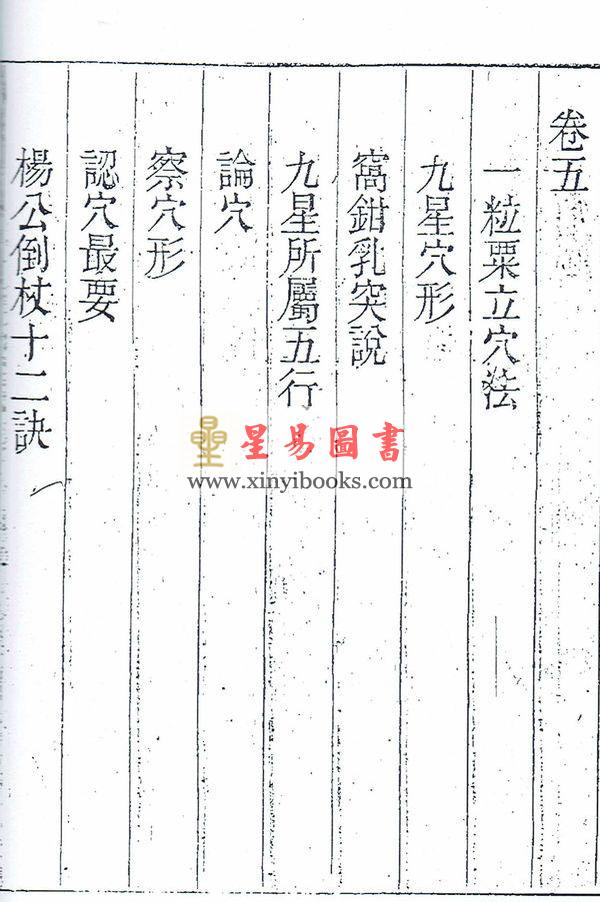 卷五
一粒粟立穴法
九星穴形
窩鉗乳突說
九星所屬五行
論穴
察穴形
認穴最要
楊公倒杖十二訣
星易圖書
www.xinyibooks.com